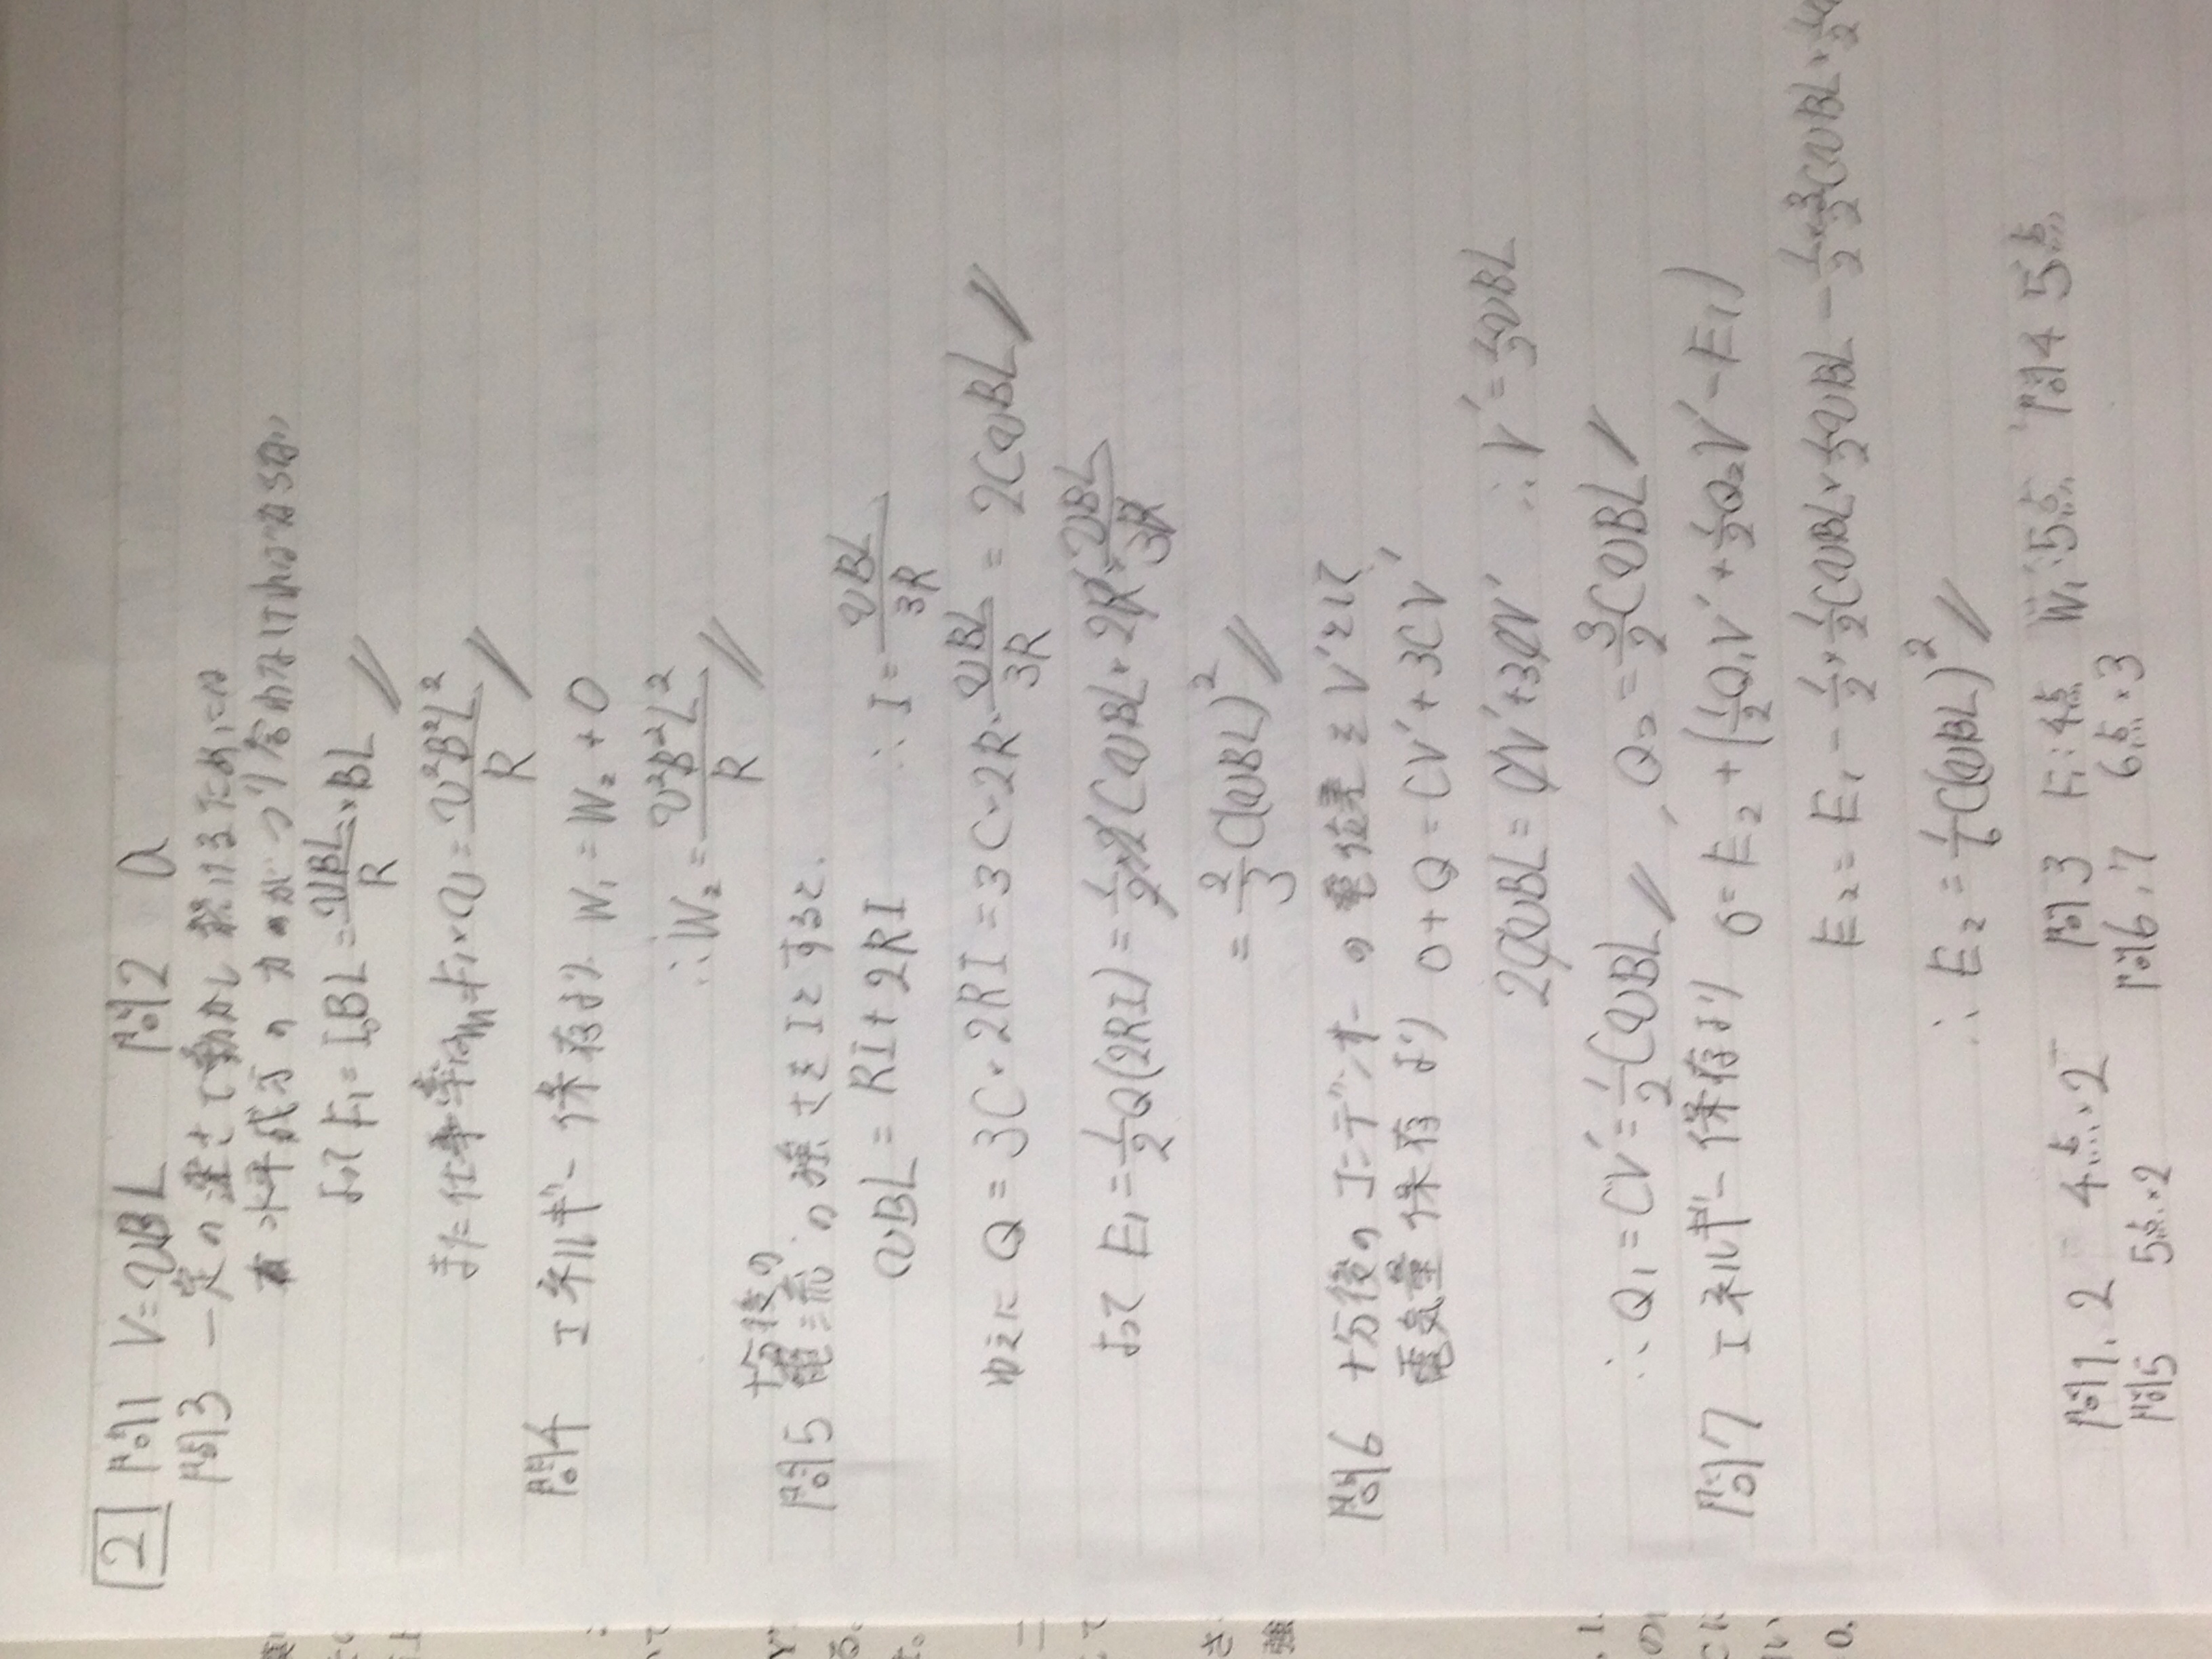 2 問1 V=vBL 問2 a
問3 一定の速さで動かし続けるためには
水平成分の力のがつり合わなければならない
よって F₁=I₀BL=vBL/R×BL
また仕事率は F₁×v=v²B²L²/R
問4 エネルギー保存より W₁=W₂+0
∴W₂=v²B²L²/R
十分後の
問5 電流の強さをIとすると、
vBL=RI+2RI ∴I=vBL/3R
ゆえに Q=3C×2RI=3C×2R×vBL/3R=2CvBL
よって E₁=1/2Q(2RI)=1/2×2CvBL×2R×vBL/3R
=2/3C(vBL)²
問6 十分後のコンデンサーの電位差をV'として
電気量保存より 0+Q=CV'+3CV'
2CvBL=CV'+3CV' ∴V'=1/2vBL
∴Q₁=CV'=1/2CvBL, Q₂=3/2CvBL
問7 エネルギー保存より 0=E₂+(1/2Q₁V'+1/2Q₂V'-E₁)
E₂=E₁-1/2×1/2CvBL×1/2vBL-1/2×3/2CvBL×1/2
∴E₂=1/6C(vBL)²
問1、2 4点×2 問3 F₁:4点 W₁:5点 問4 5点
問5 5点×2 問6,7 6点×3